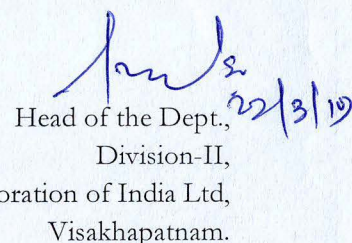 Head of the Dept., 22/3/19
Division-II,
oration of India Ltd,
Visakhapatnam.